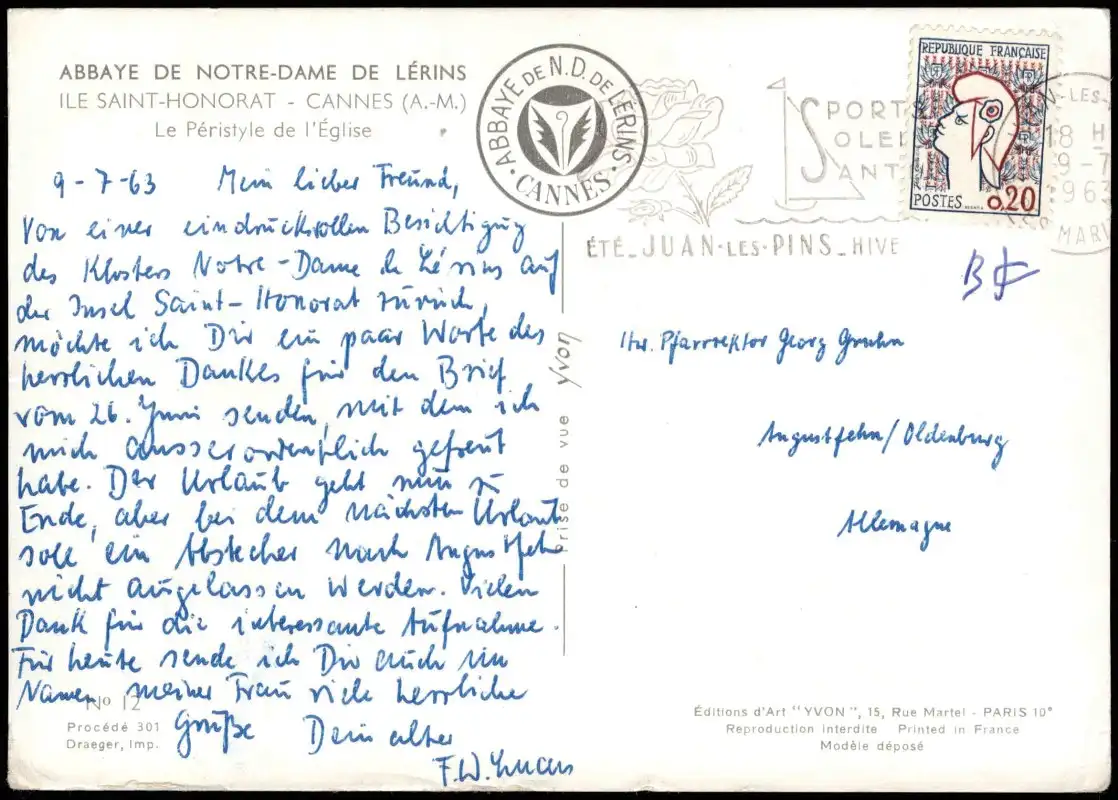 ABBAYE DE NOTRE-DAME DE LÉRINS
ILE SAINT-HONORAT - CANNES (A.-M.)
Le Péristyle de l'Église
9-7-63 Mein lieber Freund,
Von einer eindrucksvollen Besichtigung
des Klosters Notre-Dame de Lérins auf
der Insel Saint-Honorat zurück,
möchte ich Dir ein paar Worte des
herzlichen Dankes für den Brief
vom 26. Juni senden, mit dem ich
mich ausserordentlich gefreut
habe. Der Urlaub geht nun zu
Ende, aber bei dem nächsten Urlaub
soll ein Abstecher nach Augustfehn
nicht ausgelassen werden. Vielen
Dank für die interessante Aufnahme.
Für heute sende ich Dir auch im
Namen meiner Frau viele herzliche
Grüße Dein alter
F.W.
No 12
Procédé 301
Draeger, Imp.
Prise de vue Yvon
ABBAYE DE N.D. DE LÉRINS
CANNES
SPORT
SOLEI
SANT
ÉTÉ_JUAN-LES-PINS_HIVE
RÉPUBLIQUE FRANÇAISE
POSTES 0,20
-LES-
18 H
9-7
963
MARI
Hr. Pfarrektor Georg Gruhn
Augustfehn/Oldenburg
Allemagne
Éditions d'Art "YVON", 15, Rue Martel - PARIS 10e
Reproduction interdite Printed in France
Modèle déposé